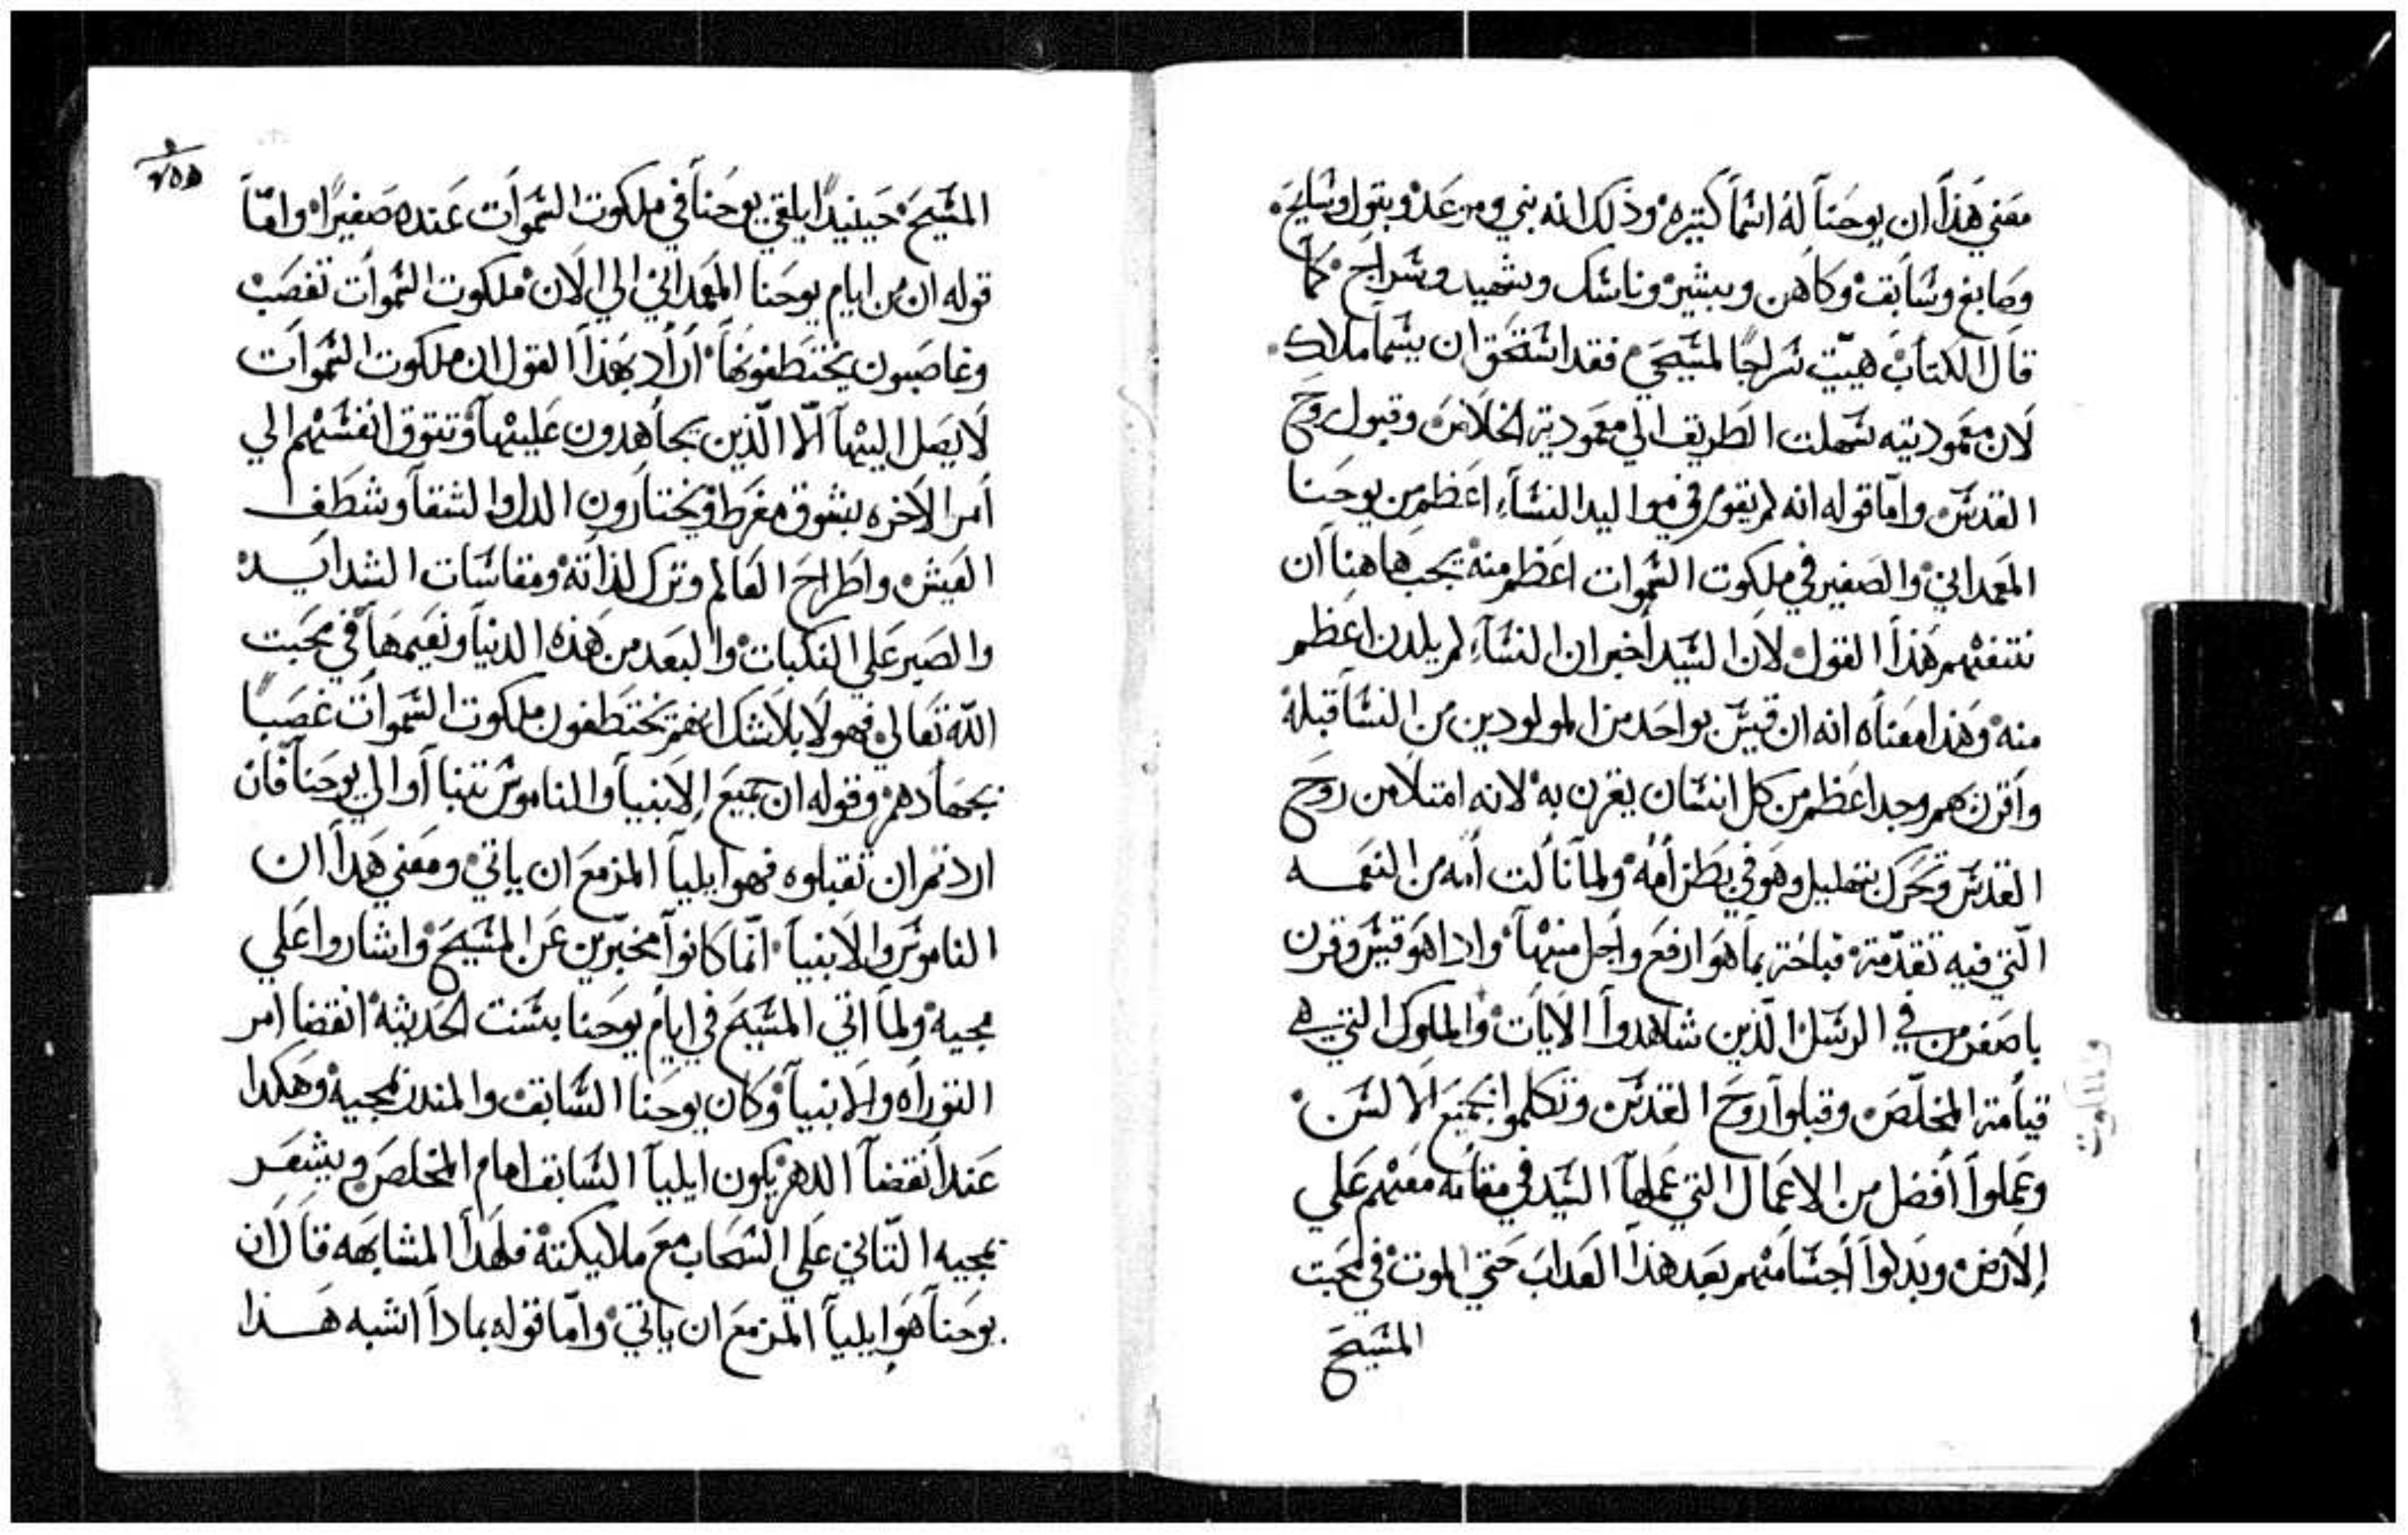 معني هذا ان يوحنا له اسما كتيره وذلك انه نبي ومرعد وبتول وسايح
وصابغ وسابق وكاهن ومبشر وناسك وشهيد وسراج كما
قال الكتاب هييت سراجا لمسيحي فقد استحق ان يسما ملاك
لان معموديته سهلت الطريق الي معمودية الخلاص وقبول روح
القدس واما قوله انه لم يقوم في مواليد النساء اعظم من يوحنا
المعمداني والصغير في ملكوت السموات اعظم منه يجب هاهنا ان
نتفهم هذا القول لان السيد اخبر ان النساء لم يلدن اعظم
منه وهذا معناه انه ان قيس بواحد من المولودين من النسا قبله
واقرن بهم وجد اعظم من كل انسان يقرن به لانه امتلا من روح
القدس وتحرك بتهليل وهو في بطن امه ولما نالت امه من النعمه
التي فيه تقدمة فباحة بما هو ارفع واجل منها وادا هو قيس وقرن
باصغر من في الرسل الذين شاهدوا الايات والملوك التي هي
قيامة المخلص وقبلوا روح القدس وتكلموا بجميع الالسن
وعملوا افضل من الاعمال التي عملها السيد في مقامه معهم علي
الارض وبدلوا اجسامهم بعد هذا العداب حتي الموت في محبت
المسيح
والملكوت
٢٥٥
المسيح حينيدا يلقي يوحنا في ملكوت السموات عنده صغيرا واما
قوله ان من ايام يوحنا المعمداني الي الان ملكوت السموات تغصب
وغاصبون يختطفونها اراد بهذا القول ان ملكوت السموات
لا يصل اليها الا الذين يجاهدون عليها وتتوق انفسهم الي
امر الاخره بشوق مفرط ويختارون الدل والشقا وشظف
العيش واطراح العالم وترك لذاته ومقاسات الشدايد
والصبر علي النكبات والبعد من هذه الدنيا ونعيمها في محبت
الله تعالي فهولا بلا شك انهم يختطفون ملكوت السموات غصبا
بجهادهم وقوله ان جميع الانبيا والناموس تنباوا الي يوحنا فان
اردتم ان تقبلوه فهو ايليا المزمع ان ياتي ومعني هدا ان
الناموس والانبيا انما كانوا مخبرين عن المسيح واشاروا علي
مجيه ولما اتي المسيح في ايام يوحنا بسنت الحديثه انقضا امر
التوراه والانبيا وكان يوحنا السابق والمندر بمجيه وهكدا
عند انقضا الدهر يكون ايليا السابق امام المخلص ويشعر
بمجيه التاني علي السحاب مع ملايكته فلهدا المشابهه قال ان
يوحنا هو ايليا المزمع ان ياتي واما قوله بمادا اشبه هذا